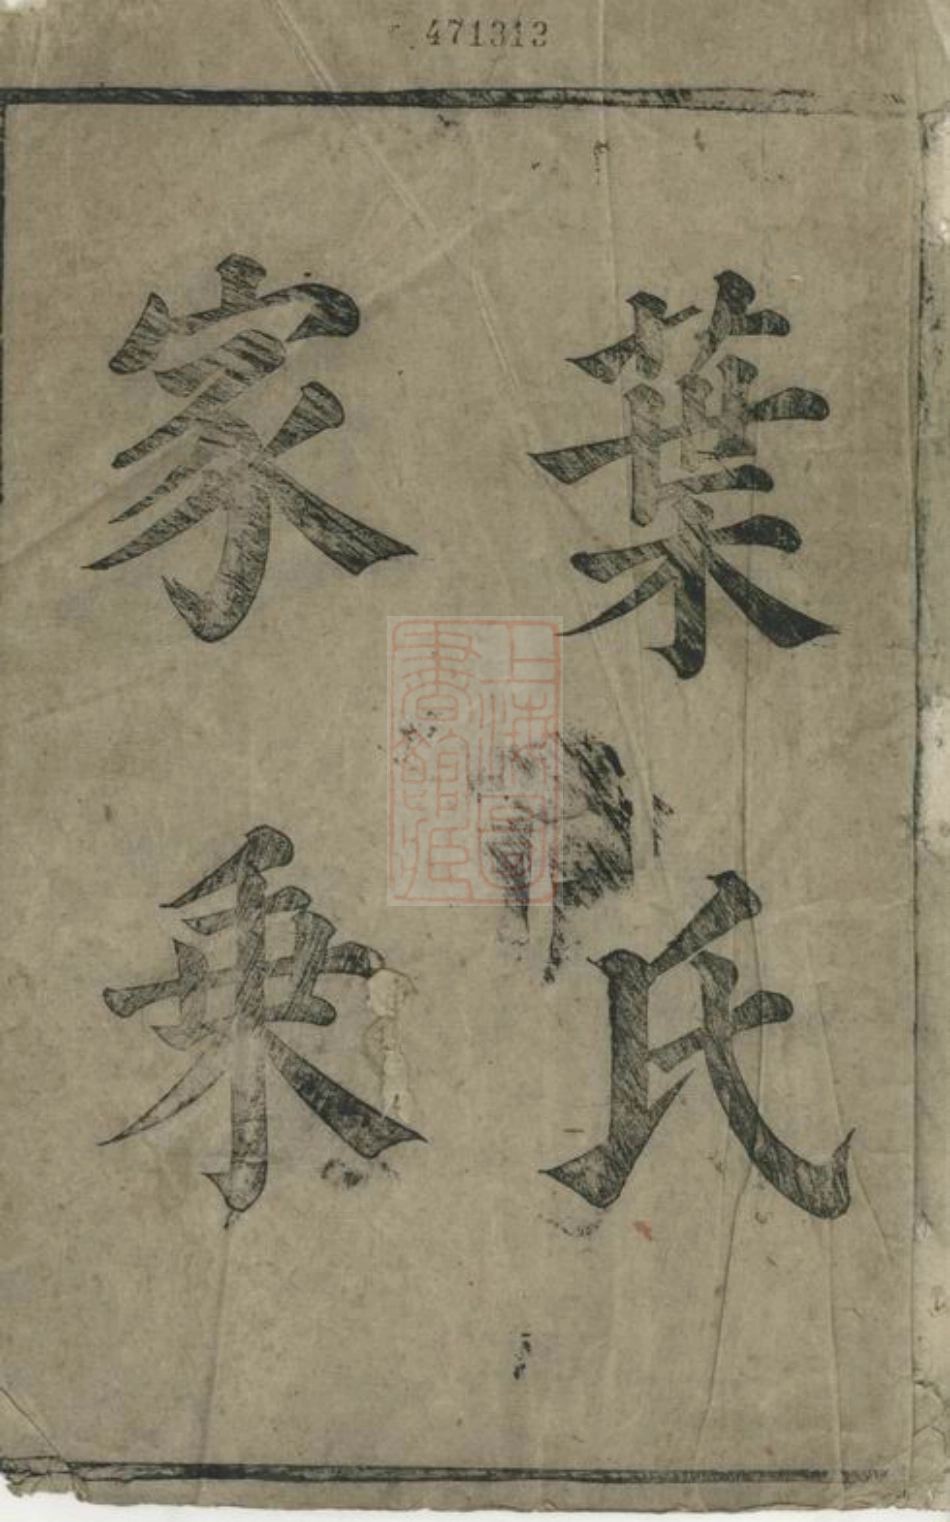 471313
葉氏
家乘
上海圖書館藏